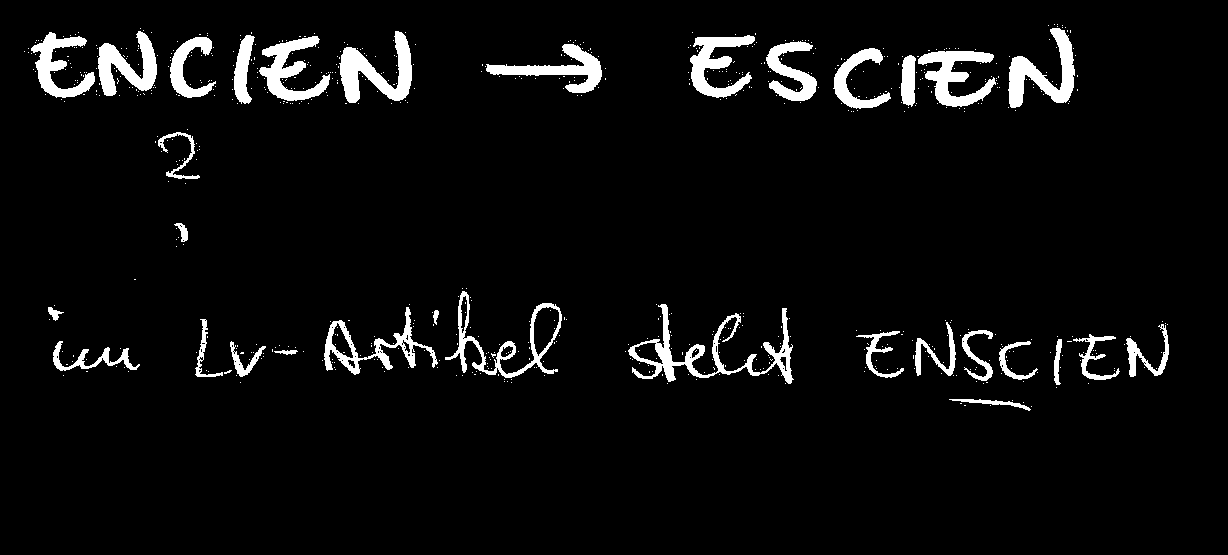 ENCIEN → ESCIEN
?
im Lv-Artikel steht ENSCIEN